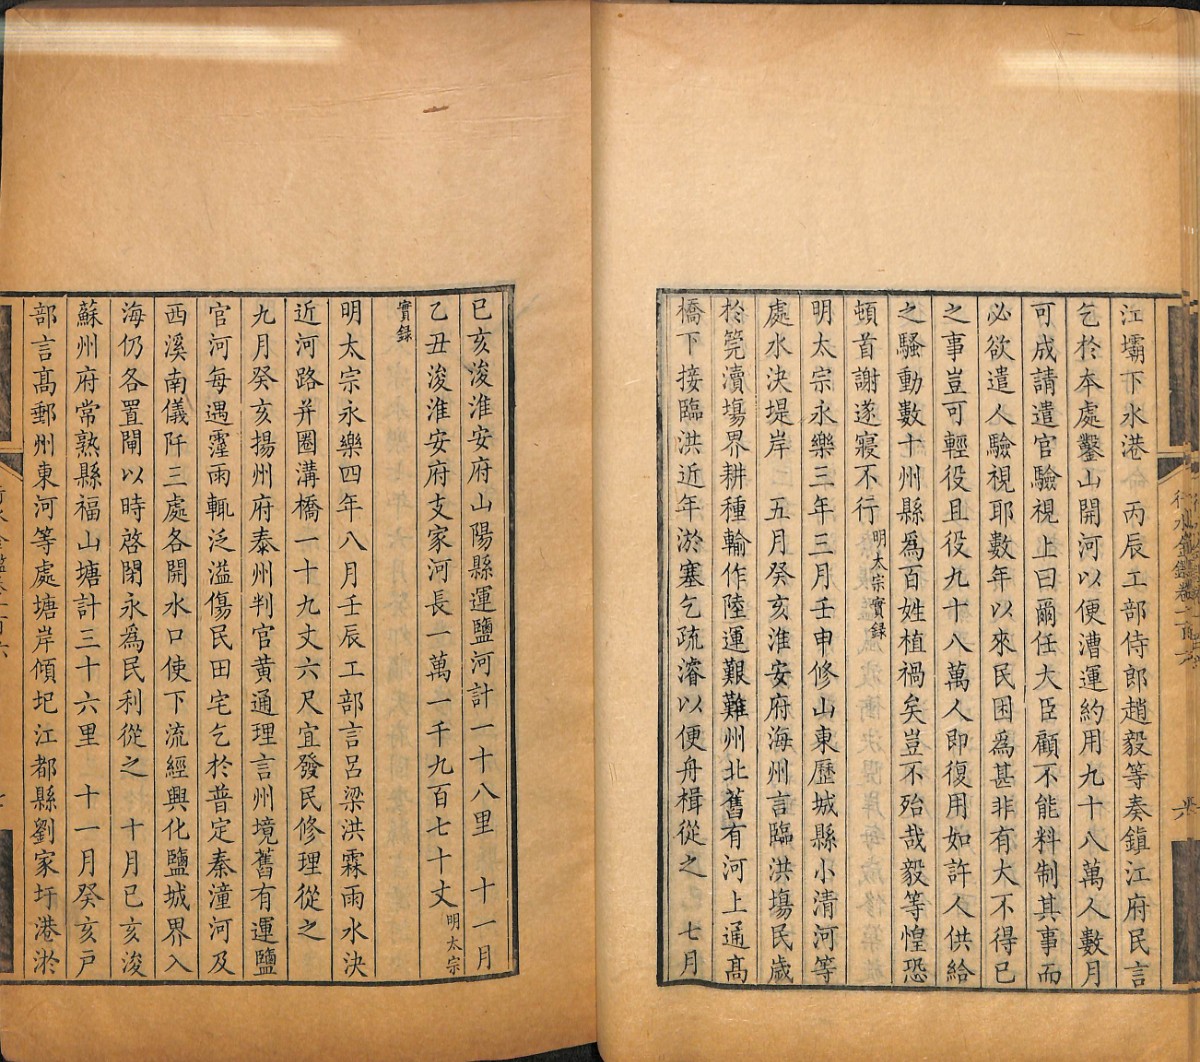 江壩下水港　丙辰工部侍郎趙毅等奏鎮江府民言
乞於本處鑿山開河以便漕運約用九十八萬人數月
可成請遣官驗視上曰爾任大臣顧不能料制其事而
必欲遣人驗視耶數年以來民困爲甚非有大不得已
之事豈可輕役且役九十八萬人即復用如許人供給
之騷動數十州縣爲百姓植禍矣豈不殆哉毅等惶恐
頓首謝遂寢不行明太宗實錄
明太宗永樂三年三月壬申修山東歷城縣小清河等
處水決堤岸　五月癸亥淮安府海州言臨洪塲民歲
於莞瀆塲界耕種輸作陸運艱難州北舊有河上通高
橋下接臨洪近年淤塞乞疏濬以便舟楫從之　七月
已亥浚淮安府山陽縣運鹽河計一十八里　十一月
乙丑浚淮安府支家河長一萬一千九百七十丈明太宗
實錄
明太宗永樂四年八月壬辰工部言呂梁洪霖雨水決
近河路并圈溝橋一十九丈六尺宜發民修理從之
九月癸亥揚州府泰州判官黃通理言州境舊有運鹽
官河每遇霪雨輒泛溢傷民田宅乞於普定秦潼河及
西溪南儀阡三處各開水口使下流經興化鹽城界入
海仍各置閘以時啓閉永爲民利從之　十月已亥浚
蘇州府常熟縣福山塘計三十六里　十一月癸亥戶
部言高郵州東河等處塘岸傾圮江都縣劉家圩港淤